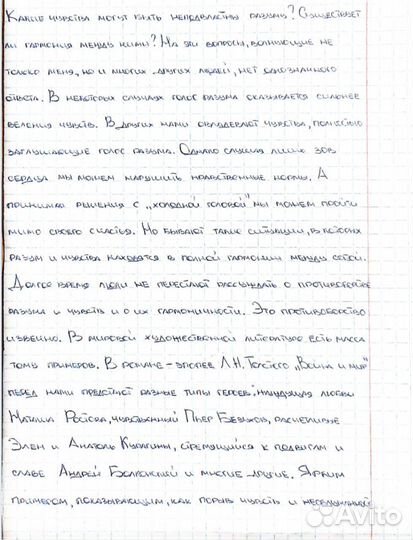 Какие чувства могут быть неподвластны разуму? Существует
ли гармония между ними? На эти вопросы, волнующие не
только меня, но и многих других людей, нет однозначного
ответа. В некоторых случаях голос разума оказывается сильнее
веления чувств. В других нами овладевают чувства, полностью
заглушающие голос разума. Однако слушая лишь зов
сердца мы можем нарушить нравственные нормы. А
принимая решения с „холодной головой" мы можем пройти
мимо своего счастья. Но бывают такие ситуации, в которых
разум и чувства находятся в полной гармонии между собой.
Долгое время люди не перестают рассуждать о противоборстве
разума и чувств и о их гармоничности. Это противоборство
извечно. В мировой художественной литературе есть масса
тому примеров. В романе-эпопее Л.Н. Толстого „Война и мир"
перед нами предстают разные типы героев: жаждущая любви
Наташа Ростова, чувственный Пьер Безухов, расчетливые
Элен и Анатоль Курагины, стремящийся к подвигам и
славе Андрей Болконский и многие другие. Ярким
примером, показывающим, как порыв чувств и
Avito